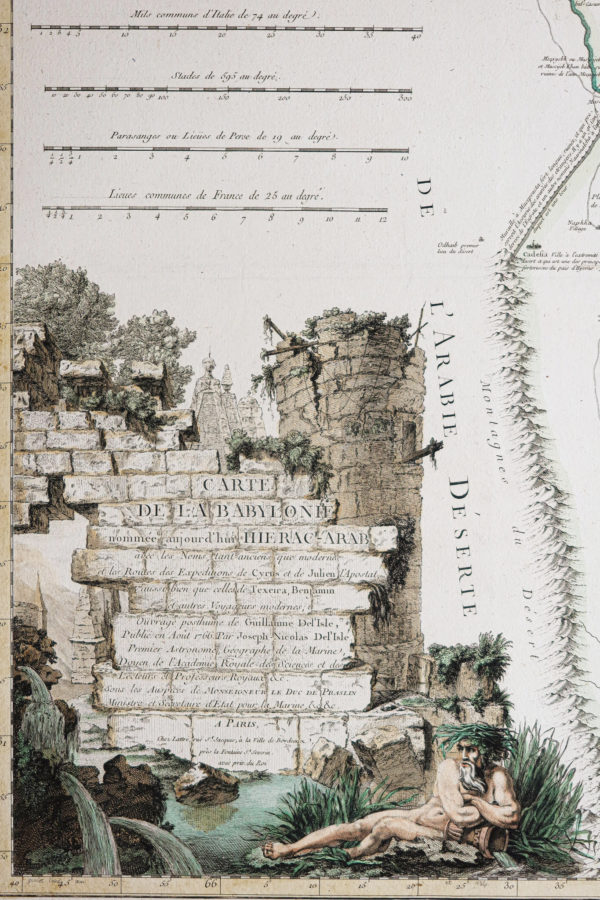 Mils communs d'Italie de 74 au degré.
1 2 3 4 5 10 20 30 40
Stades de 595 au degré.
10 20 30 40 50 60 70 80 90 100 200 300
Parasanges ou Lieues de Perse de 19 au degré.
1 2 3 4 5 6 7 8 9 10
Lieues communes de France de 25 au degré.
1 2 3 4 5 6 7 8 9 10 11 12
DE
L'ARABIE DÉSERTE
Montagnes du Désert
Odhaib premier
lieu du désert
Cadesia Ville à l'extremité
Naphka
Village
CARTE
DE LA BABYLONIE
nommée aujourd'hui HIERAC-ARAB
avec les Noms tant anciens que modernes
et les Routes des Expeditions de Cyrus et de Julien l'Apostat
aussi bien que celles de Texeira, Benjamin
et autres Voyageurs modernes;
Ouvrage posthume de Guillaume Del'Isle,
Publié en Aout 1766. Par Joseph-Nicolas Del'Isle
Premier Astronome Géographe de la Marine,
Doyen de l'Académie Royale des Sciences et des
Lecteurs et Professeurs Royaux &c.
Sous les Auspices de MONSEIGNEUR LE DUC DE PRASLIN
Ministre et Secretaire d'Etat pour la Marine &c. &c.
A PARIS,
Chez Lattré, rue St. Jacques, à la Ville de Bordeaux,
près la Fontaine St. Severin
avec priv. du Roi
40 45 50 55 66 5 10 25 30 35